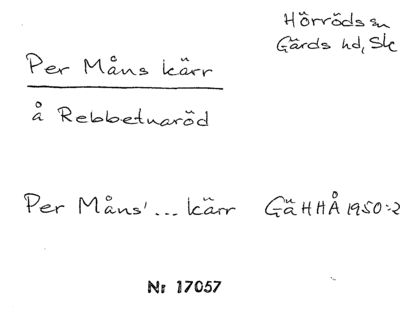 Hörröds sn
Gärds hd, Sk
Per Måns kärr
å Rebbetuaröd
Per Måns' ... kärr GäHHÅ 1950:2
Nr 17057